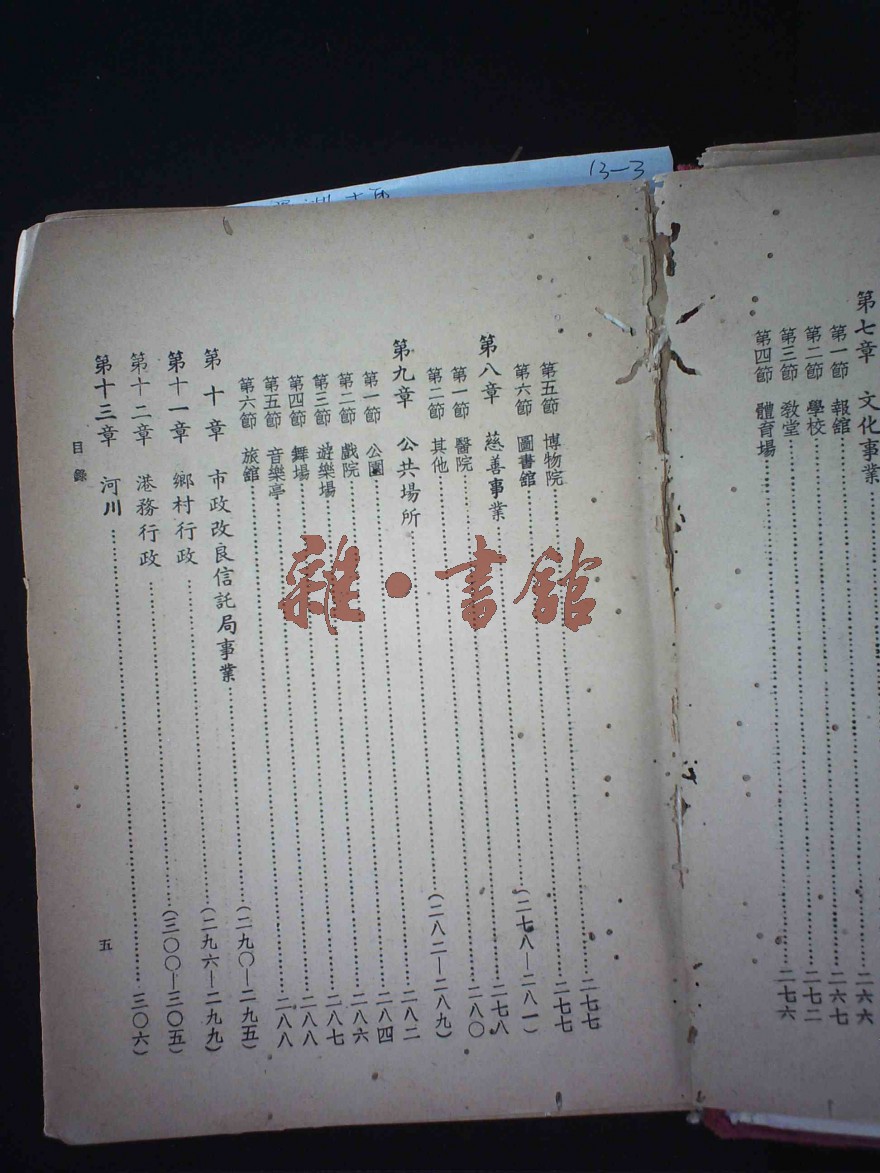 13-3
第七章　文化事業
第一節　報館……二六六
第二節　學校……二六七
第三節　教堂……二七二
第四節　體育場……二七六
第五節　博物院……二七七
第六節　圖書館……二七七
第八章　慈善事業……(二七八—二八一)
第一節　醫院……二七八
第二節　其他……二八〇
第九章　公共場所……(二八二—二八九)
第一節　公園……二八二
第二節　戲院……二八四
第三節　遊樂場……二八六
第四節　舞場……二八七
第五節　音樂亭……二八八
第六節　旅館……二八八
第十章　市政改良信託局事業……(二九〇—二九五)
第十一章　鄉村行政……(二九六—二九九)
第十二章　港務行政……(三〇〇—三〇五)
第十三章　河川……三〇六)
目錄　五
雜·書館